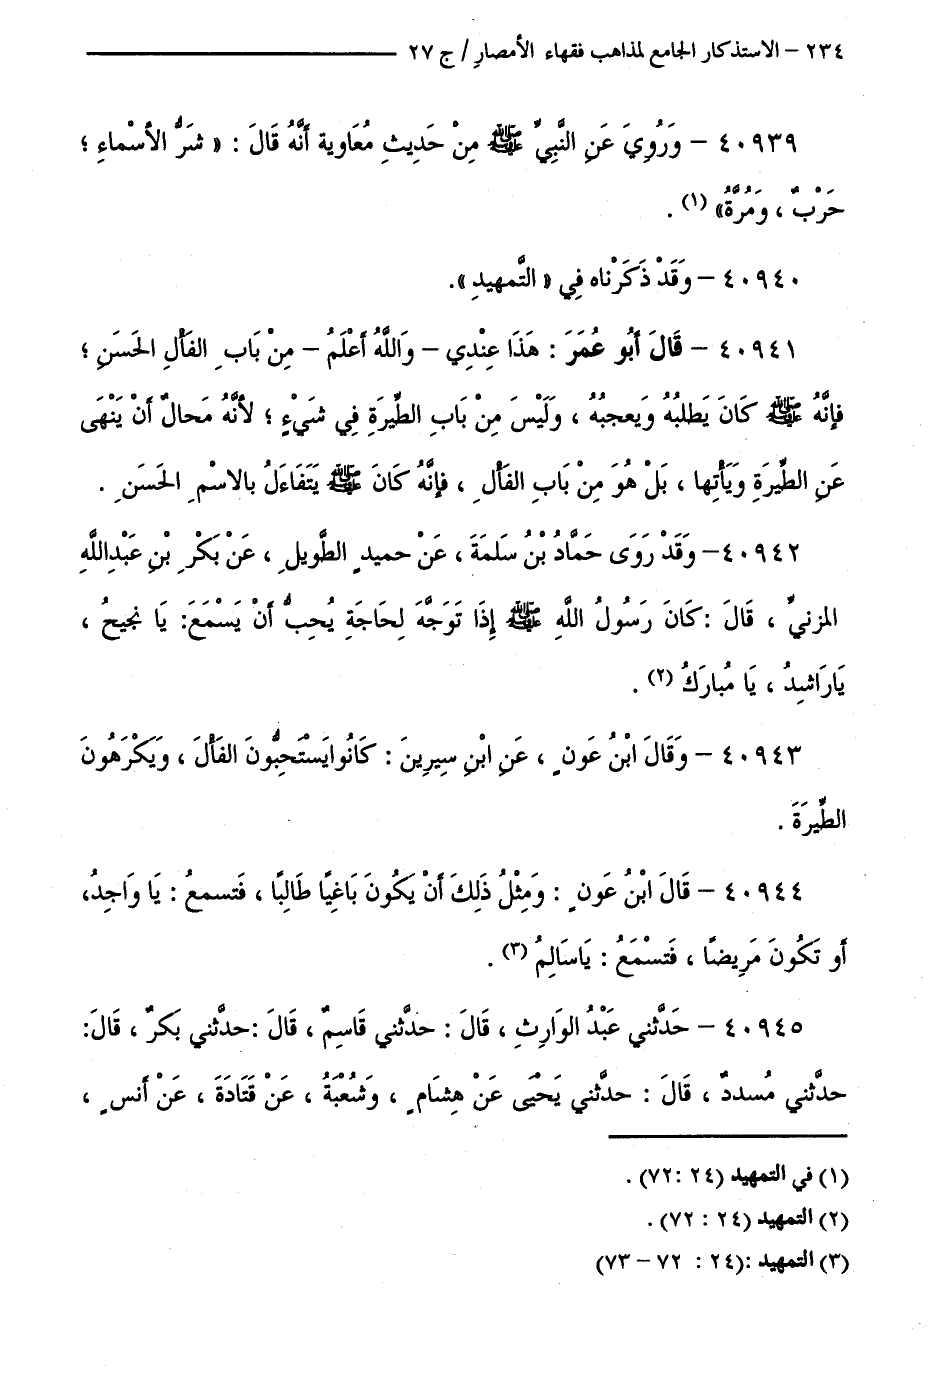 ٢٣٤ – الاستذكار الجامع لمذاهب فقهاء الأمصارِ / ج ٢٧
٤٠٩٣٩ – وَرُوِيَ عَنِ النَّبِيِّ ﷺ مِنْ حَدِيثِ مُعَاوية أنَّهُ قَالَ : « شَرُّ الأسْماءِ ؛
حَرْبٌ ، وَمُرَّةُ» (١) .
٤٠٩٤٠ – وَقَدْ ذَكَرْناه فِي « التَّمهيدِ ».
٤٠٩٤١ – قَالَ أَبُو عُمَرَ : هَذَا عِنْدِي – وَاللَّهُ أعْلَمُ – مِنْ بَابِ الفَألِ الحَسَنِ ؛
فإنَّهُ ﷺ كَانَ يَطلبُهُ وَيعجبُهُ ، وَلَيْسَ مِنْ بَابِ الطِّيرَةِ فِي شَيْءٍ ؛ لأنَّهُ مَحالٌ أنْ يَنْهَى
عَنِ الطِّيرَةِ وَيَأتِها ، بَلْ هُوَ مِنْ بَابِ الفَألِ ، فإنَّهُ كَانَ ﷺ يَتَفَاءَلُ بالاسْمِ الحَسَنِ .
٤٠٩٤٢– وَقَدْ رَوَى حَمَّادُ بْنُ سَلمَةَ ، عَنْ حميدٍ الطَّويلِ ، عَنْ بَكْرِ بْنِ عَبْدِاللَّهِ
المزنيِّ ، قَالَ :كَانَ رَسُولُ اللَّهِ ﷺ إِذَا تَوَجَّهَ لِحَاجَةِ يُحِبُّ أنْ يَسْمَعَ: يَا نجيحُ ،
يَارَاشِدُ ، يَا مُبارَكُ (٢) .
٤٠٩٤٣ – وَقَالَ ابْنُ عَونٍ ، عَنِ ابْنِ سِيرِينَ : كَانُوايَسْتَحِبُّونَ الفَألَ ، وَيَكْرَهُونَ
الطِّيرَةَ .
٤٠٩٤٤ – قَالَ ابْنُ عَونٍ : وَمِثْلُ ذَلِكَ أنْ يَكُونَ بَاغِيًا طَالِبًا ، فَتسمعُ : يَا وَاجِدُ،
أو تَكُونَ مَرِيضًا ، فَتسْمَعُ : يَاسَالِمُ (٣) .
٤٠٩٤٥ – حَدَّثني عَبْدُ الوَارِثِ ، قَالَ : حدَّثني قَاسِمٌ ، قَالَ :حدَّثني بَكرٌ ، قَالَ:
حدَّثني مُسددٌ ، قَالَ : حدَّثني يَحْيَى عَنْ هِشَامٍ ، وَشُعْبَةُ ، عَنْ قَتَادَةَ ، عَنْ أنسٍ ،
(١) في التمهيد (٢٤ :٧٢) .
(٢) التمهيد (٢٤ : ٧٢) .
(٣) التمهيد :(٢٤ : ٧٢ – ٧٣)